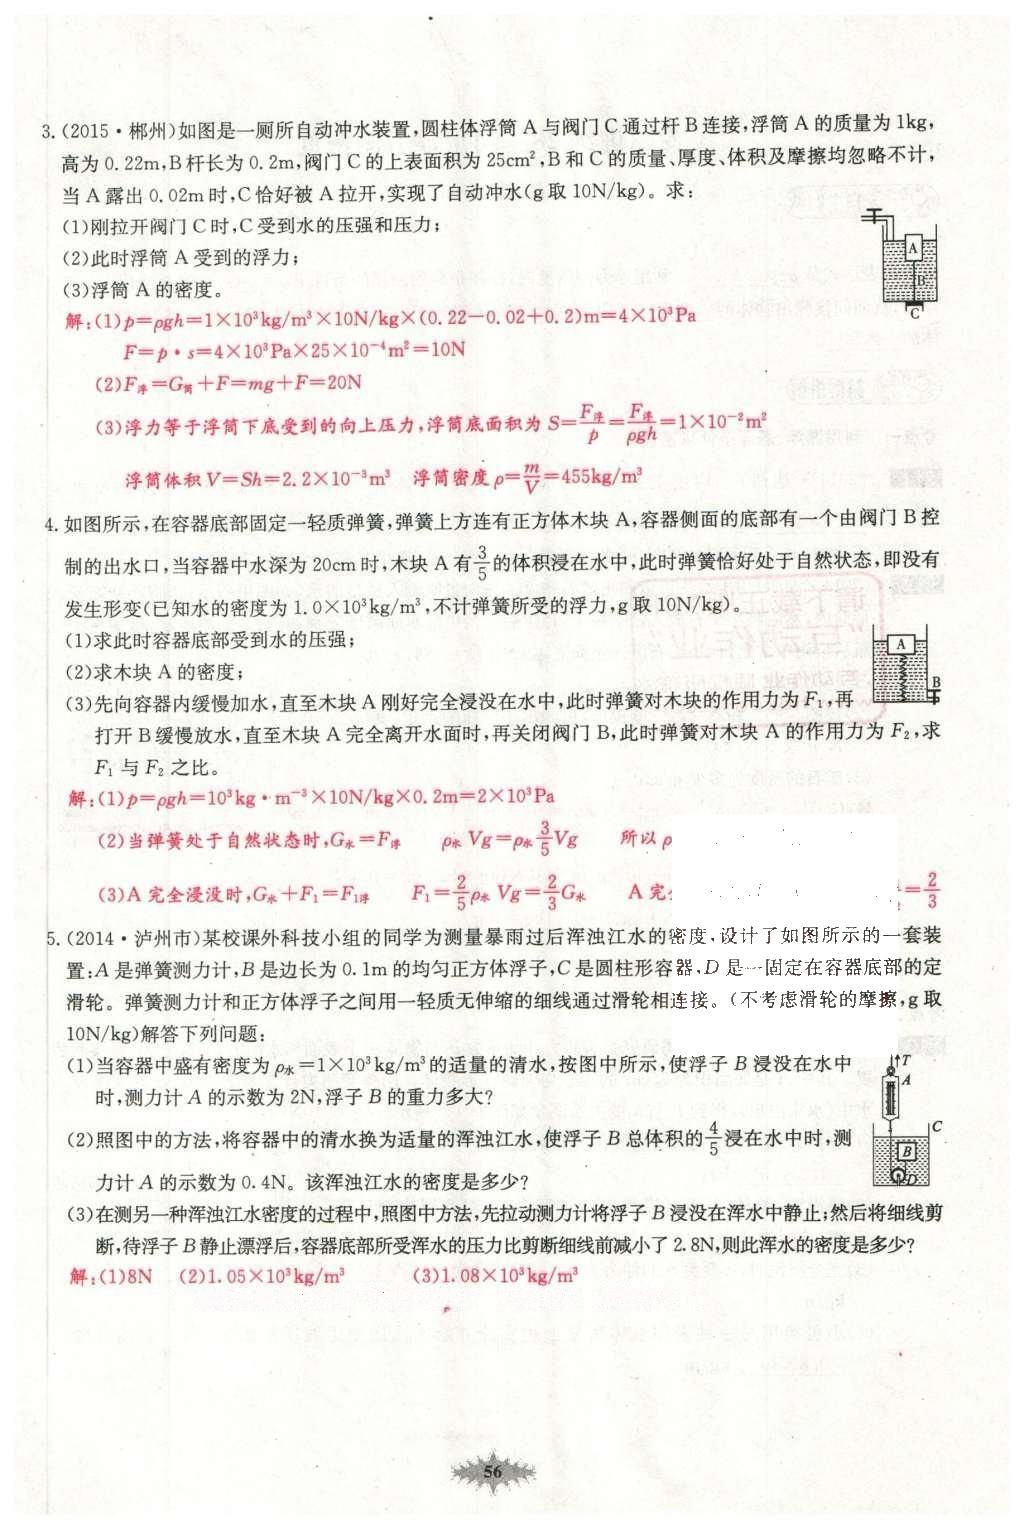 3.(2015·郴州)如图是一厕所自动冲水装置,圆柱体浮筒 A 与阀门 C 通过杆 B 连接,浮筒 A 的质量为 1kg,
高为 0.22m,B 杆长为 0.2m,阀门 C 的上表面积为 25cm²,B 和 C 的质量、厚度、体积及摩擦均忽略不计,
当 A 露出 0.02m 时,C 恰好被 A 拉开,实现了自动冲水(g 取 10N/kg)。求:
(1)刚拉开阀门 C 时,C 受到水的压强和压力;
(2)此时浮筒 A 受到的浮力;
(3)浮筒 A 的密度。
A
B
C
解:(1)p=ρgh=1×10³kg/m³×10N/kg×(0.22-0.02+0.2)m=4×10³Pa
F=p·s=4×10³Pa×25×10⁻⁴m²=10N
(2)F浮=G筒+F=mg+F=20N
(3)浮力等于浮筒下底受到的向上压力,浮筒底面积为 S=F浮/p=F浮/ρgh=1×10⁻²m²
浮筒体积 V=Sh=2.2×10⁻³m³ 浮筒密度 ρ=m/V=455kg/m³
4.如图所示,在容器底部固定一轻质弹簧,弹簧上方连有正方体木块 A,容器侧面的底部有一个由阀门 B 控
制的出水口,当容器中水深为 20cm 时,木块 A 有3/5的体积浸在水中,此时弹簧恰好处于自然状态,即没有
发生形变(已知水的密度为 1.0×10³kg/m³,不计弹簧所受的浮力,g 取 10N/kg)。
(1)求此时容器底部受到水的压强;
(2)求木块 A 的密度;
(3)先向容器内缓慢加水,直至木块 A 刚好完全浸没在水中,此时弹簧对木块的作用力为 F₁,再
打开 B 缓慢放水,直至木块 A 完全离开水面时,再关闭阀门 B,此时弹簧对木块 A 的作用力为 F₂,求
F₁ 与 F₂ 之比。
A
B
解:(1)p=ρgh=10³kg·m⁻³×10N/kg×0.2m=2×10³Pa
(2)当弹簧处于自然状态时,G木=F浮 ρ木Vg=ρ水3/5Vg 所以 ρ
(3)A 完全浸没时,G木+F₁=F₁浮 F₁=2/5ρ水Vg=2/3G木 A 完 =2/3
5.(2014·泸州市)某校课外科技小组的同学为测量暴雨过后浑浊江水的密度,设计了如图所示的一套装
置:A 是弹簧测力计,B 是边长为 0.1m 的均匀正方体浮子,C 是圆柱形容器,D 是一固定在容器底部的定
滑轮。弹簧测力计和正方体浮子之间用一轻质无伸缩的细线通过滑轮相连接。(不考虑滑轮的摩擦,g 取
10N/kg)解答下列问题:
(1)当容器中盛有密度为 ρ水=1×10³kg/m³的适量的清水,按图中所示,使浮子 B 浸没在水中
时,测力计 A 的示数为 2N,浮子 B 的重力多大?
(2)照图中的方法,将容器中的清水换为适量的浑浊江水,使浮子 B 总体积的4/5浸在水中时,测
力计 A 的示数为 0.4N。该浑浊江水的密度是多少?
T
A
C
B
D
(3)在测另一种浑浊江水密度的过程中,照图中方法,先拉动测力计将浮子 B 浸没在浑水中静止;然后将细线剪
断,待浮子 B 静止漂浮后,容器底部所受浑水的压力比剪断细线前减小了 2.8N,则此浑水的密度是多少?
解:(1)8N (2)1.05×10³kg/m³ (3)1.08×10³kg/m³
56